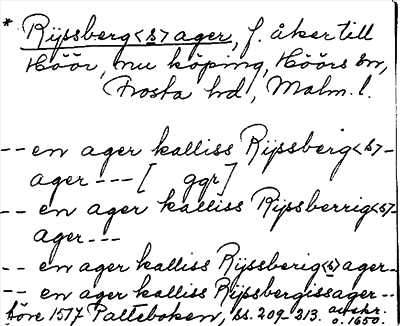 * Rijssberg<s>ager, f. åker till
Höör, nu köping, Höörs sn,
Frosta hd, Malm. l.
-- en ager kalliss Rijssberig<s>-
ager --- [ ggr]
-- en ager kalliss Rijssberrig<s>-
ager ---
-- en ager kalliss Rijssberig<s>ager--
-- en ager kalliss Rijssbergissager--
före 1577 Palteboken, ss. 209-213. avskr.
o. 1650.